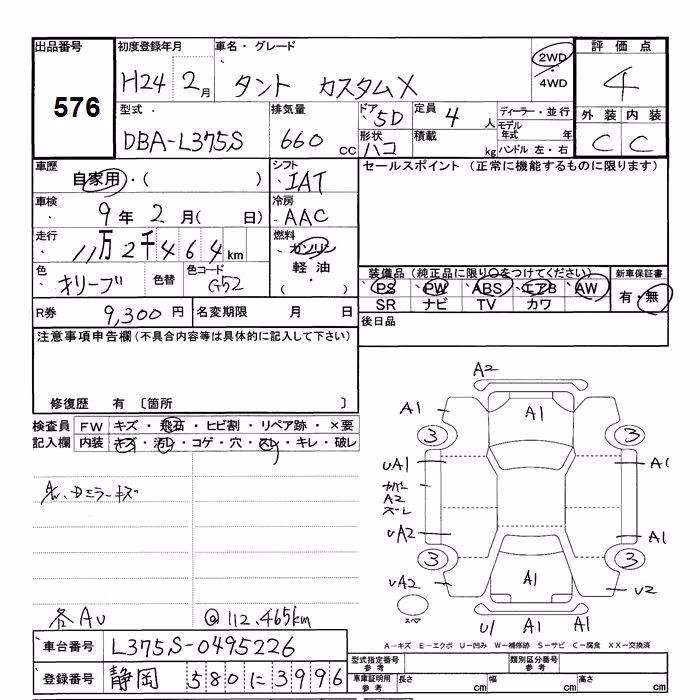 出品番号 初度登録年月 車名・グレード 評価点
576 H24 2月 タント カスタムX 2WD 4WD 4
型式 排気量 ドア 定員 ディーラー・並行 外装 内装
DBA-L375S 660 cc 5D 4人 モデル年式 年 C C
形状 ハコ 積載 kg ハンドル 左・右
車歴 自家用・( ) シフト IAT セールスポイント (正常に機能するものに限ります)
車検 9年 2月( 日) 冷房 AAC
走行 11万2千464km 燃料 ガソリン 軽油 ・( )
色 オリーブ 色替 色コード G52
装備品 (純正品に限り○をつけてください) 新車保証書
PS PW ABS エアB AW 有・無
SR ナビ TV カワ
R券 9,300円 名変期限 月 日 後日品
注意事項申告欄(不具合内容等は具体的に記入して下さい)
修復歴 有 〔箇所 〕
検査員 FW キズ・飛石・ヒビ割・リペア跡・×要
記入欄 内装 キズ・汚レ・コゲ・穴・スレ・キレ・破レ
ミラーキズ
各AU
@112,465km
A2
A1 A1
3 3
UA1 A1
カバー
A2
ズレ
UA2 A1
3 3
UA2 A1 U2
スペア U1 A1 A1
A-キズ E-エクボ U-凹み W-補修跡 S-サビ C-腐食 XX-交換済
車台番号 L375S-0495226
登録番号 静岡 580 に 3996
型式指定番号 参考 類別区分番号 参考
車庫証明用 参考 長さ cm 幅 cm 高さ cm